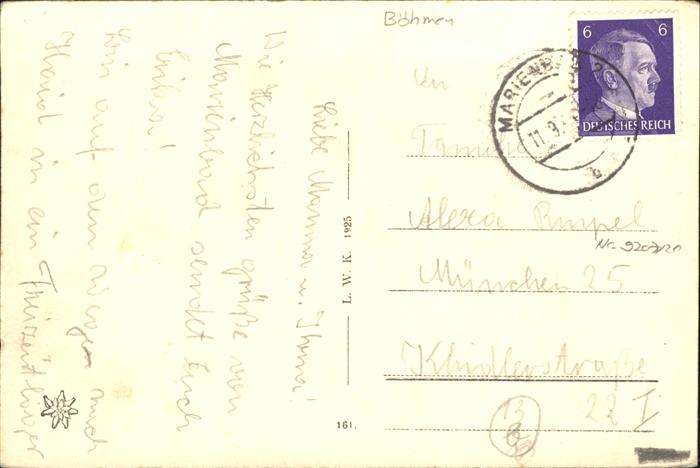 Liebe Mamma u. Ilona!
Die Herzlichsten Grüße von
Marienbad sendet Euch
Erika!
Bin auf dem Wege nach
Haid in ein
Böhmen
6 6
DEUTSCHES REICH
MARIENB
11.9.
b
An
Alexa Rumpel
München 25
Straße
13 22 I
L. W. K. 1925
161.